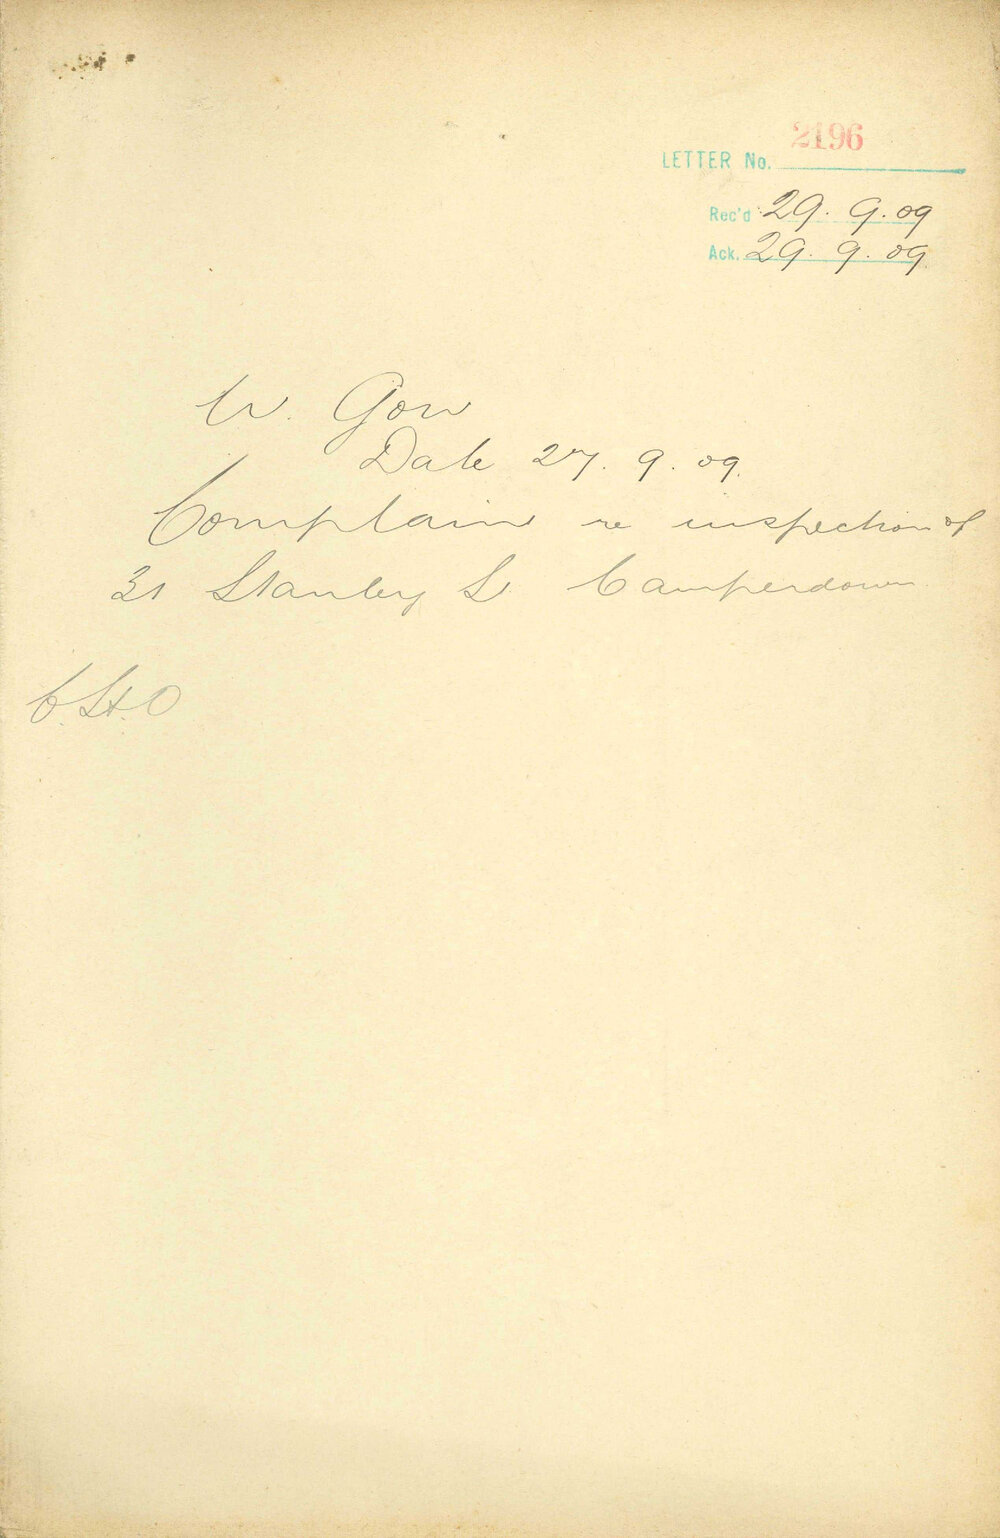 2196
LETTER No.
Rec'd 29. 9. 09
Ack. 29. 9. 09
W. Gow
Date 27. 9. 09.
Complain re inspection of
31 Stanley St Camperdown
C.H.O